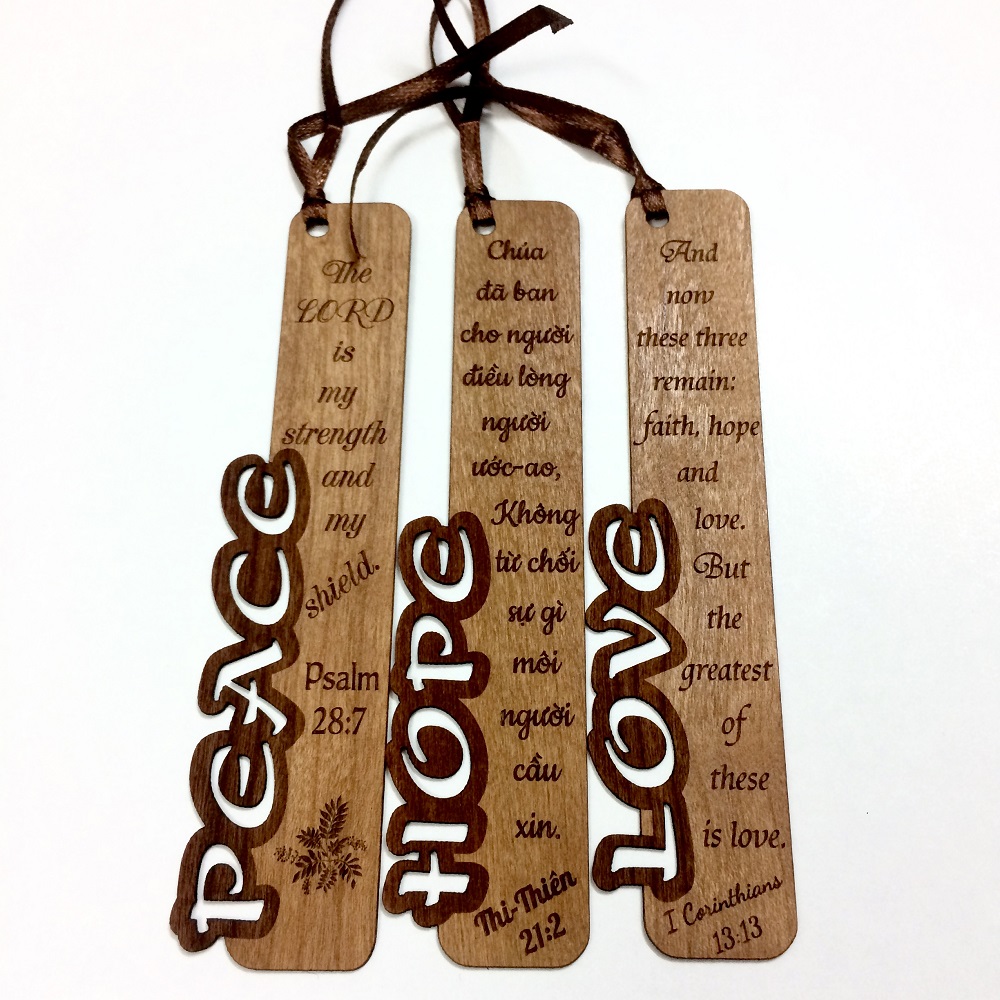 The
LORD
is
my
strength
and
my
shield.
Psalm
28:7
PeACe
Chúa
đã ban
cho người
điều lòng
người
ước-ao,
Không
từ chối
sự gì
môi
người
cầu
xin.
Thi-Thiên
21:2
HOPe
And
now
these three
remain:
faith, hope
and
love.
But
the
greatest
of
these
is love.
I Corinthians
13:13
LOVe